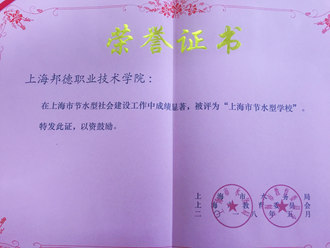 荣誉证书
上海邦德职业技术学院：
在上海市节水型社会建设工作中成绩显著，被评为“上海市节水型学校”。
特发此证，以资鼓励。
上海市水务局
上海市教育委员会